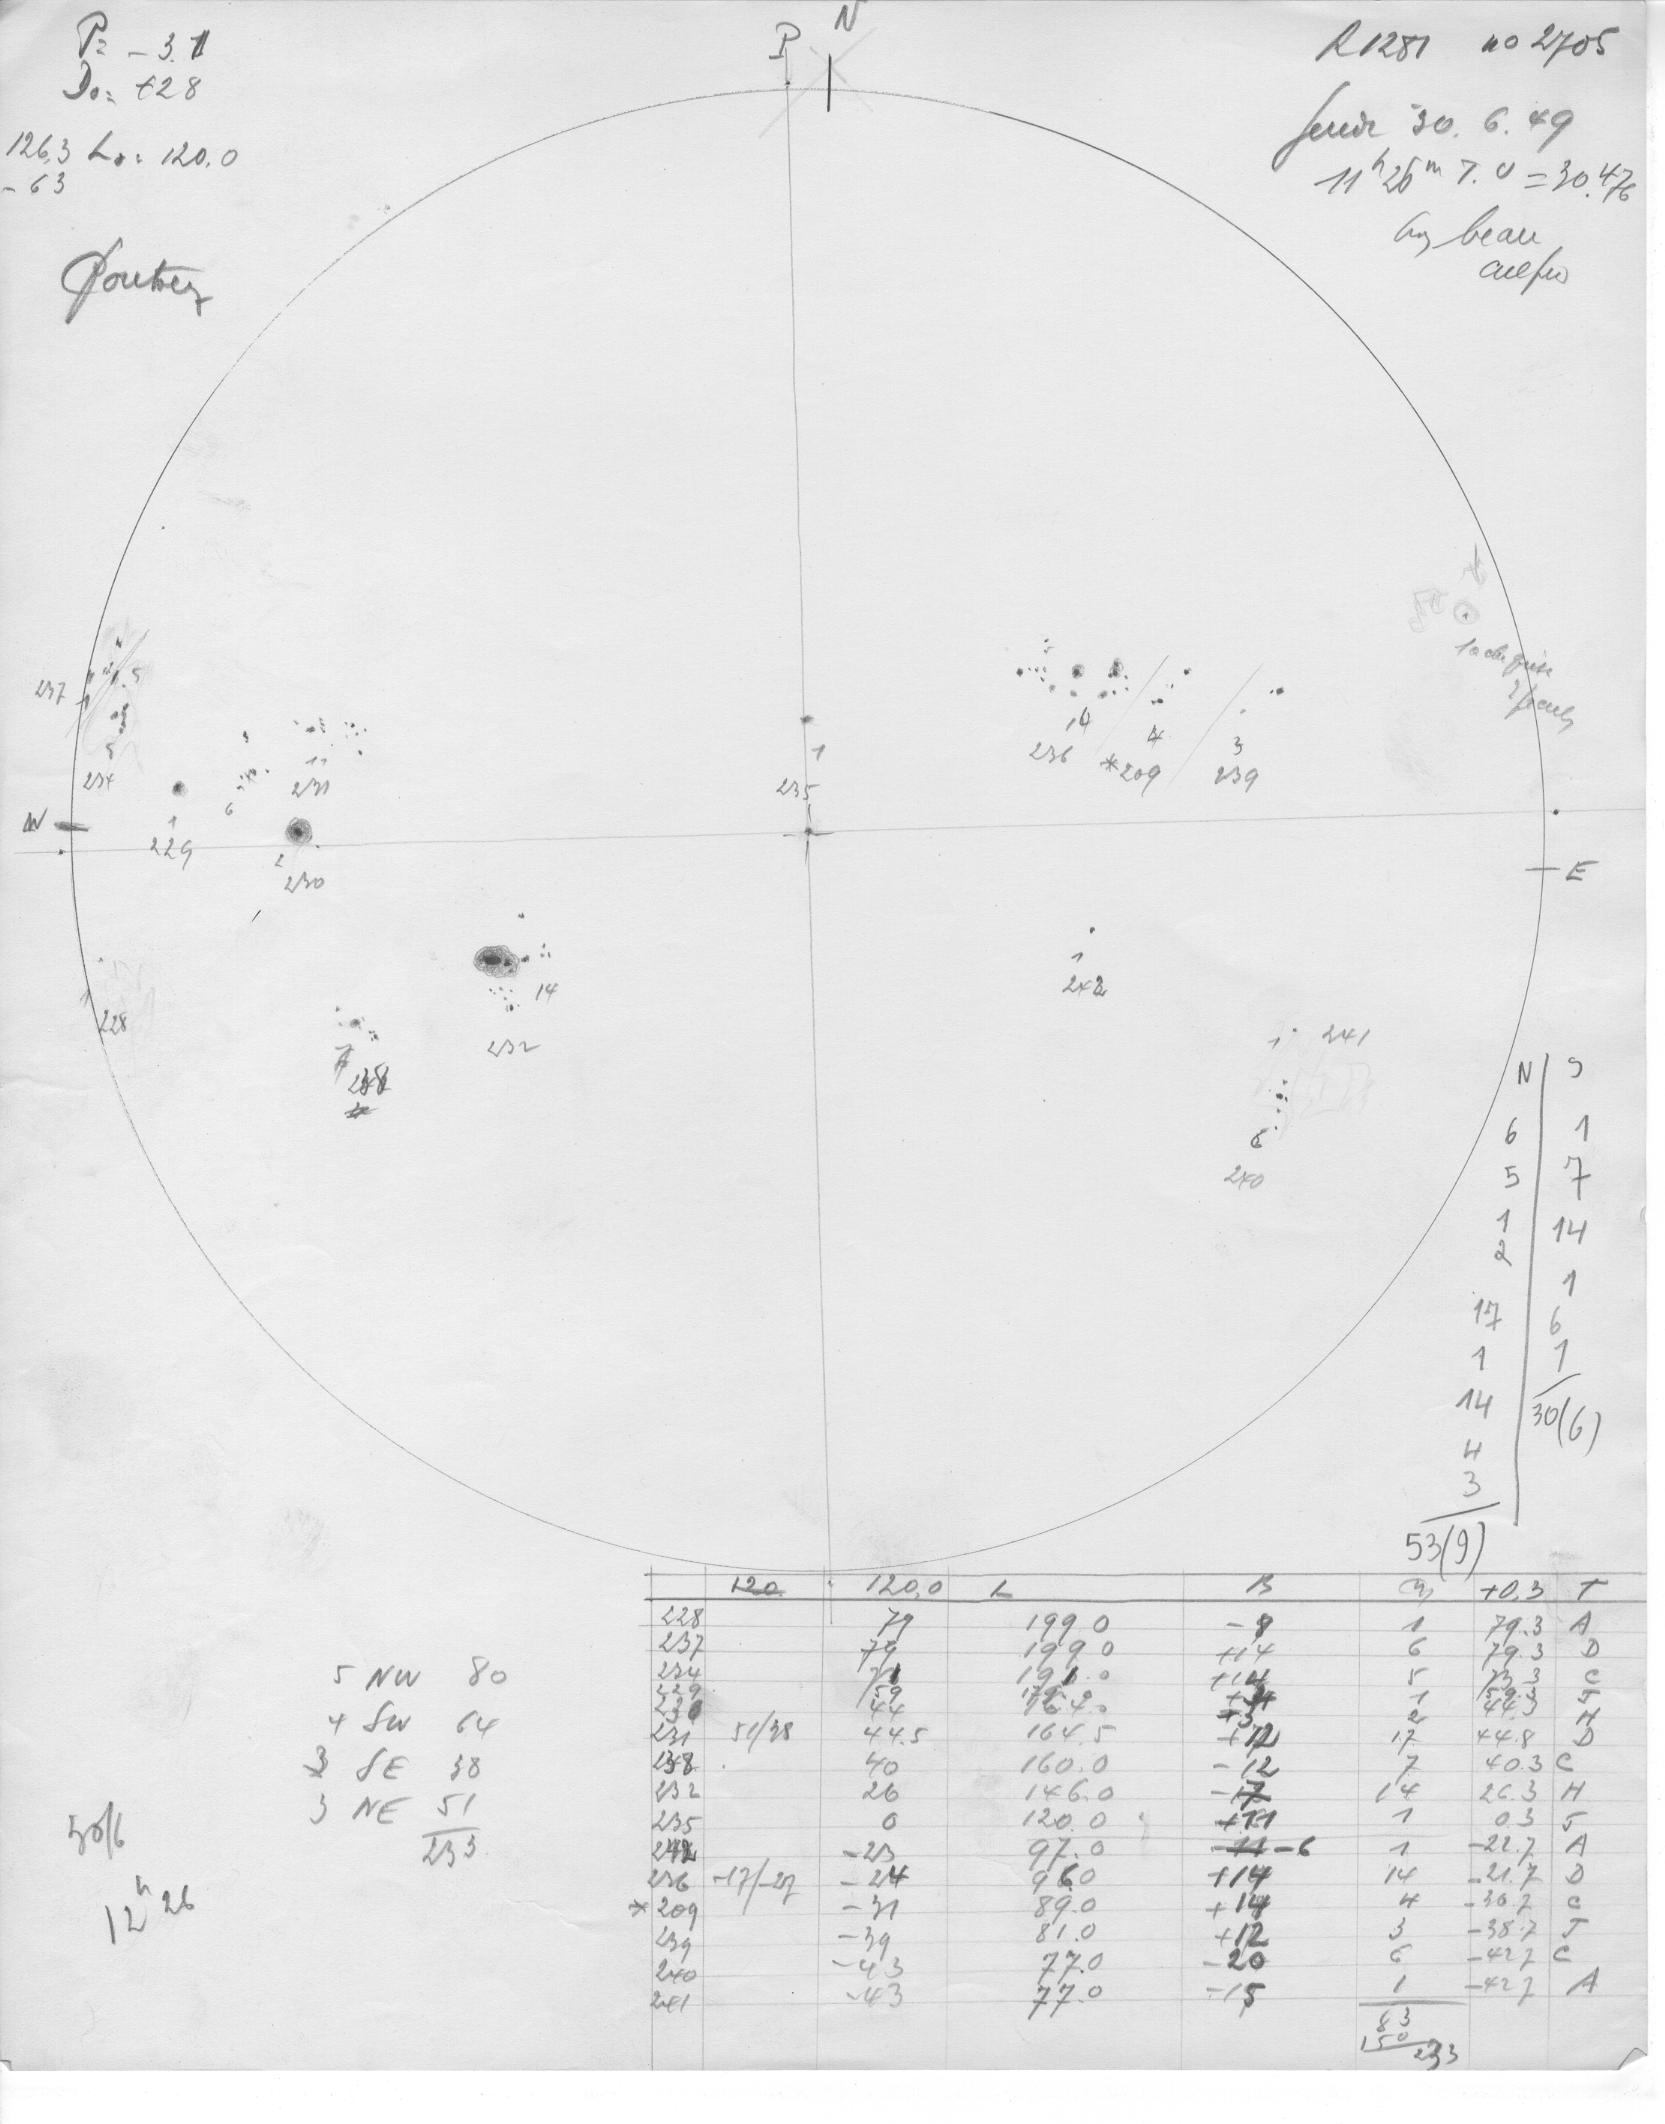 P= -3.1
D₀= +2.8
126.3 L₀= 120.0
-6.3
P N
R1281 no 2705
30.6.49
11h26m T.U = 30.476
beau
237
5
5
234
W
1
229
6
11
231
2
230
1
228
7
238
14
232
1
235
14
236
4
*209
3
239
E
1
242
1 241
6
240
N | S
6 | 1
5 | 7
1 | 14
2 | 1
17 | 6
1 | 1
14 | 30(6)
4
3
53(9)
120 120.0 L B +0.3 T
228 79 199.0 -8 1 79.3 A
237 79 199.0 +14 6 79.3 D
234 +14 5 C
229 59 1 59.3 J
230 44 164.0 +3 2 44.3 H
231 51/38 44.5 164.5 +12 17 44.8 D
238 40 160.0 -12 7 40.3 C
232 26 146.0 14 26.3 H
235 0 120.0 +11 1 0.3 J
242 -23 97.0 -11 -6 1 -22.7 A
236 -17/-27 -24 96.0 +14 14 -21.7 D
*209 -31 89.0 +14 4 -30.7 C
239 -39 81.0 +12 3 -38.7 J
240 -43 77.0 -20 6 -42.7 C
241 -43 77.0 -15 1 -42.7 A
83
150
233
5 NW 80
4 SW 64
3 SE 38
3 NE 51
233
30/6
12h26